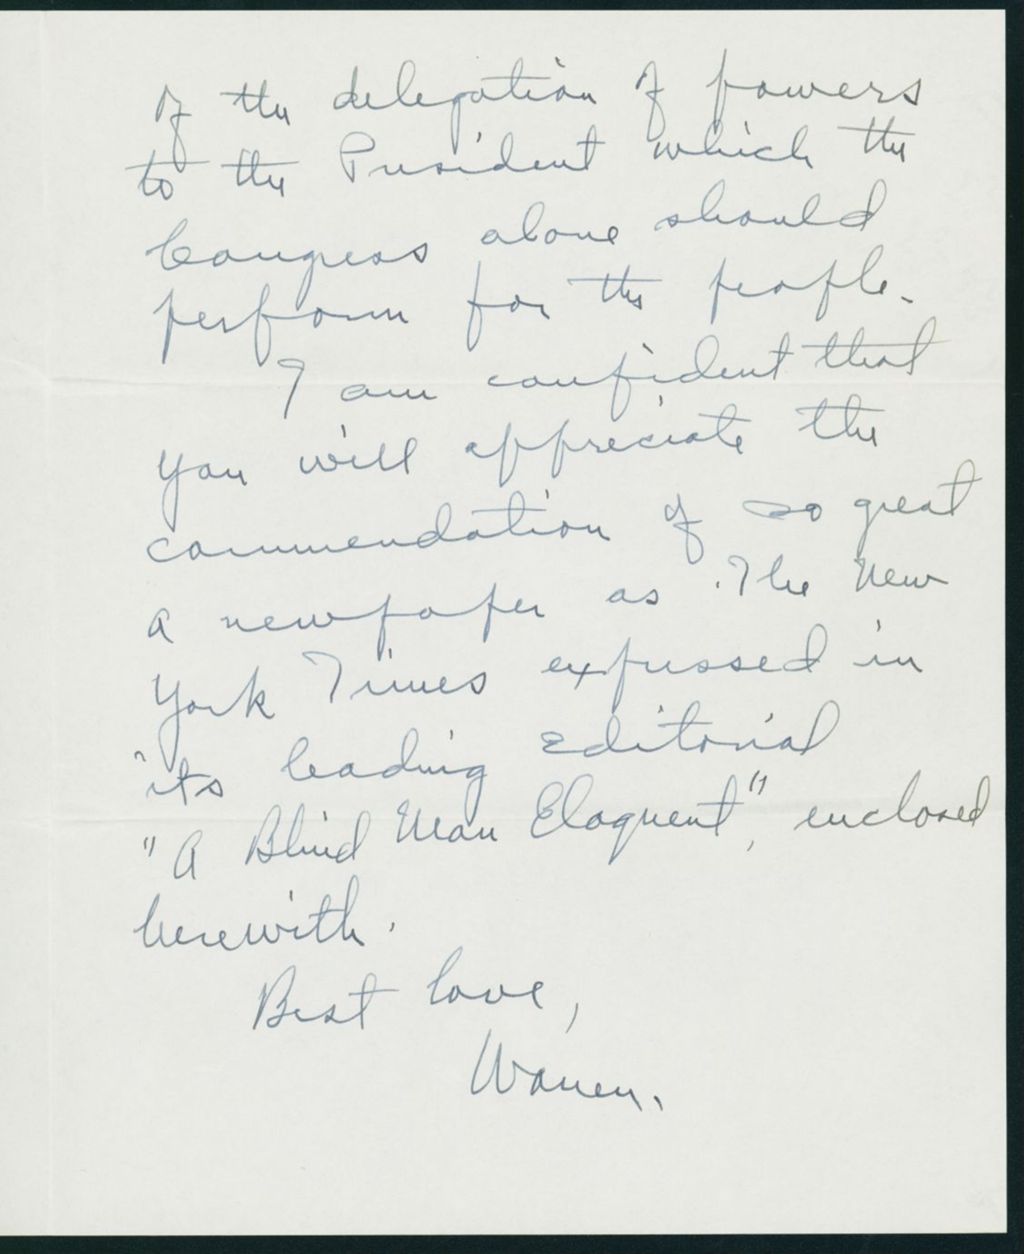 of the delegation of powers
to the President which the
Congress alone should
perform for the people.
I am confident that
you will appreciate the
commendation of so great
a newspaper as The New
York Times expressed in
its leading Editorial
"A Blind Man Eloquent", enclosed
herewith.
Best love,
Warren.